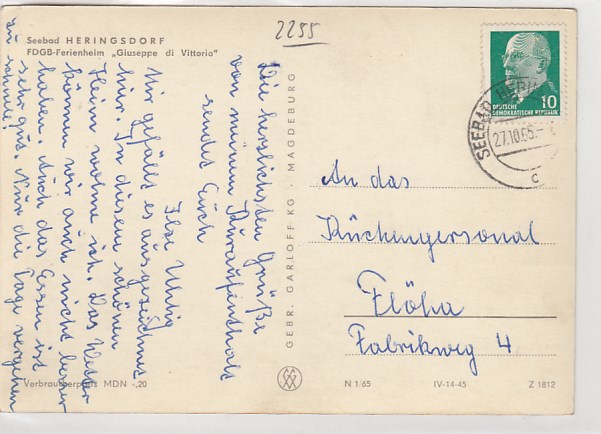 2255
Seebad HERINGSDORF
FDGB-Ferienheim „Giuseppe di Vittorio"
Die herzlichsten Grüße
von meinem Kuraufenthalt
sendet Euch
Ilse Uhlig
Mir gefällt es ausgezeichnet
hier. In diesem schönen
Heim wohne ich. Das Wetter
können wir auch nicht besser
haben. Auch das Essen ist
sehr gut. Nur die Tage vergehen
zu schnell.
Verbraucherpreis MDN -,20
GEBR. GARLOFF KG · MAGDEBURG
10
DEUTSCHE
DEMOKRATISCHE REPUBLIK
SEEBAD HERIN
27.10.65.-
c
An das
Küchenpersonal
Flöha
Fabrikweg 4
N 1/65 IV-14-45 Z 1812